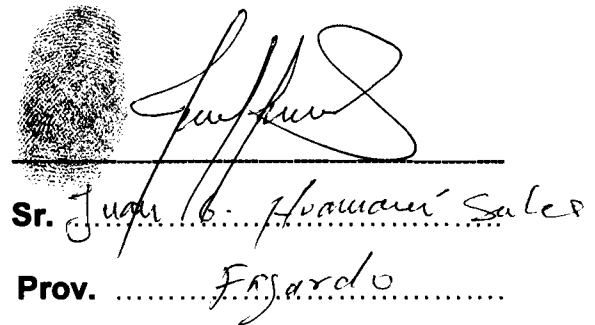 Sr. Juan B. Huamaní Sales
Prov. Fajardo